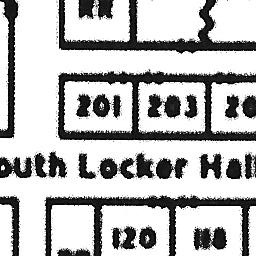 201 203 20
outh Locker Hal
120 118